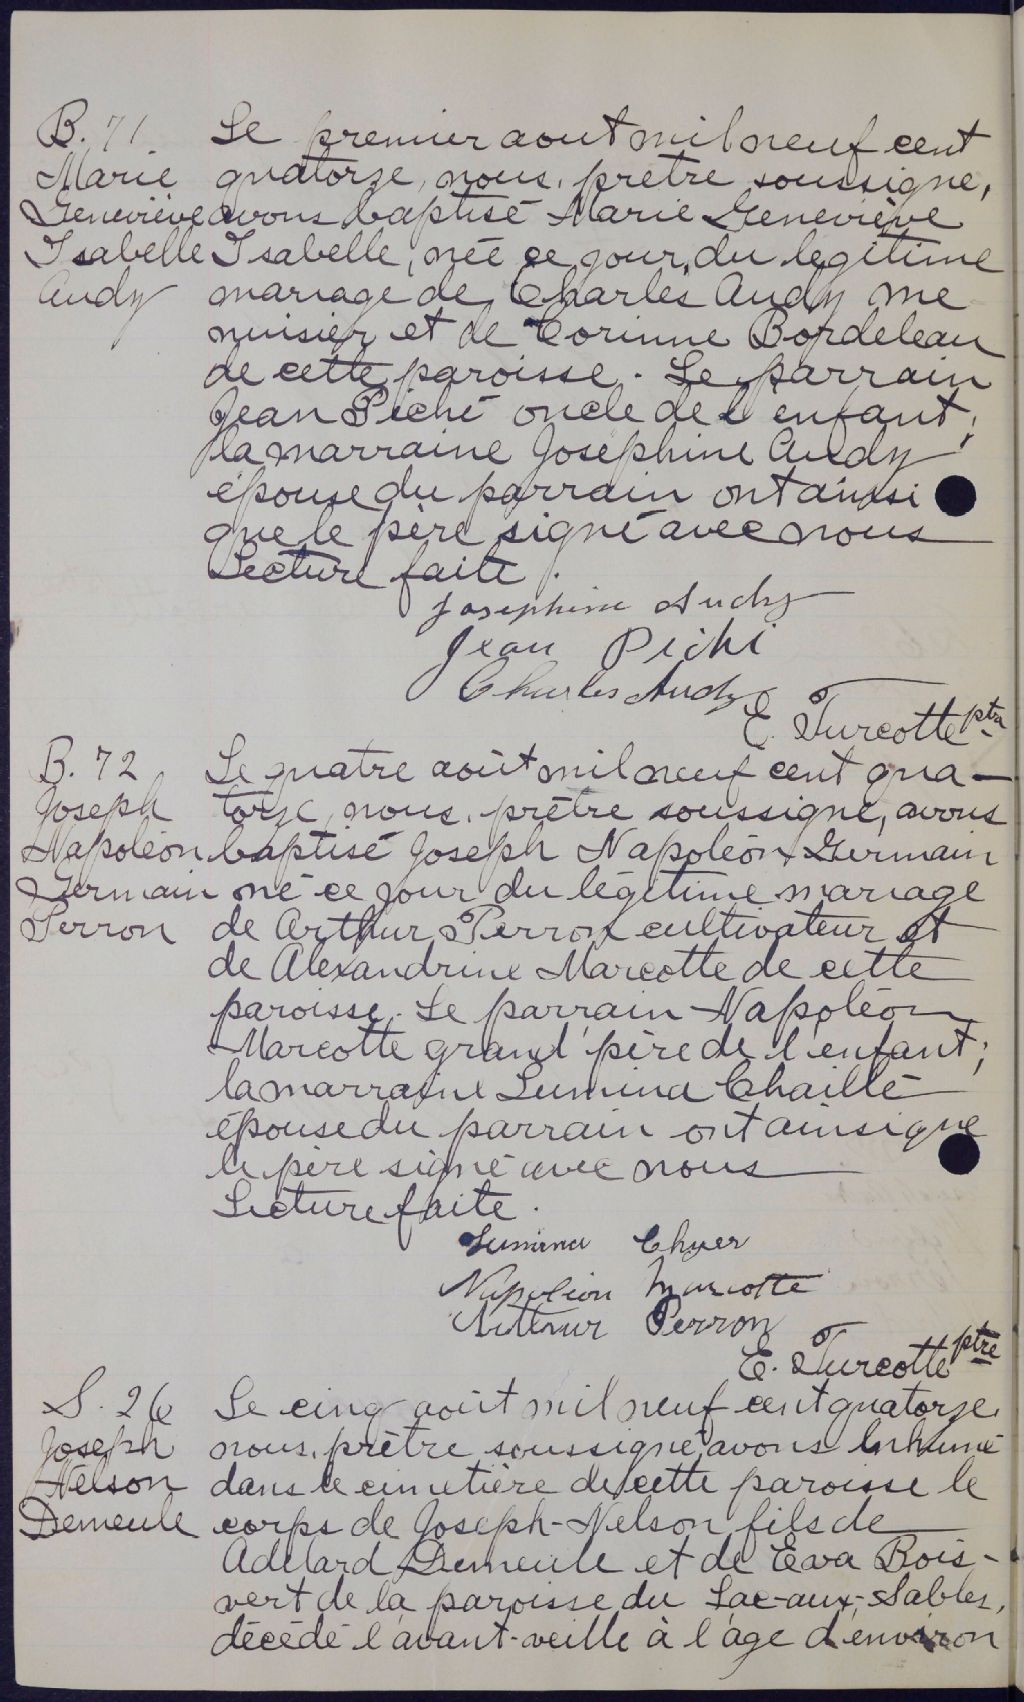 B. 71.
Marie
Geneviève
Isabelle
Audy
Le premier aout mil neuf cent
quatorze, nous, prêtre soussigné,
avons baptisé Marie Geneviève
Isabelle, née ce jour, du légitime
mariage de Charles Audy me
nuisier et de Corinne Bordeleau
de cette paroisse. Le parrain
Jean Piché oncle de l'enfant;
la marraine Joséphine Audy
épouse du parrain ont ainsi
que le père signé avec nous
Lecture faite.
Josephine Audy
Jean Piché
Charles Audy
E. Turcotte ptre
B. 72
Joseph
Napoléon
Germain
Perron
Le quatre août mil neuf cent qua-
torze, nous, prêtre soussigné, avons
baptisé Joseph Napoléon Germain
né ce jour du légitime mariage
de Arthur Perron cultivateur et
de Alexandrine Marcotte de cette
paroisse. Le parrain Napoléon
Marcotte grand'père de l'enfant;
la marraine Lumina Chaillé
épouse du parrain ont ainsi que
le père signé avec nous
Lecture faite.
Lumina Chyer
Napoleon Marcotte
Arthur Perron
E. Turcotte ptre
S. 26
Joseph
Nelson
Demeule
Le cinq août mil neuf cent quatorze,
nous, prêtre soussigné, avons inhumé
dans le cimetière de cette paroisse le
corps de Joseph-Nelson fils de
Adelard Demeule et de Eva Bois-
vert de la paroisse du Lac-aux-Sables,
décédé l'avant-veille à l'âge d'environ